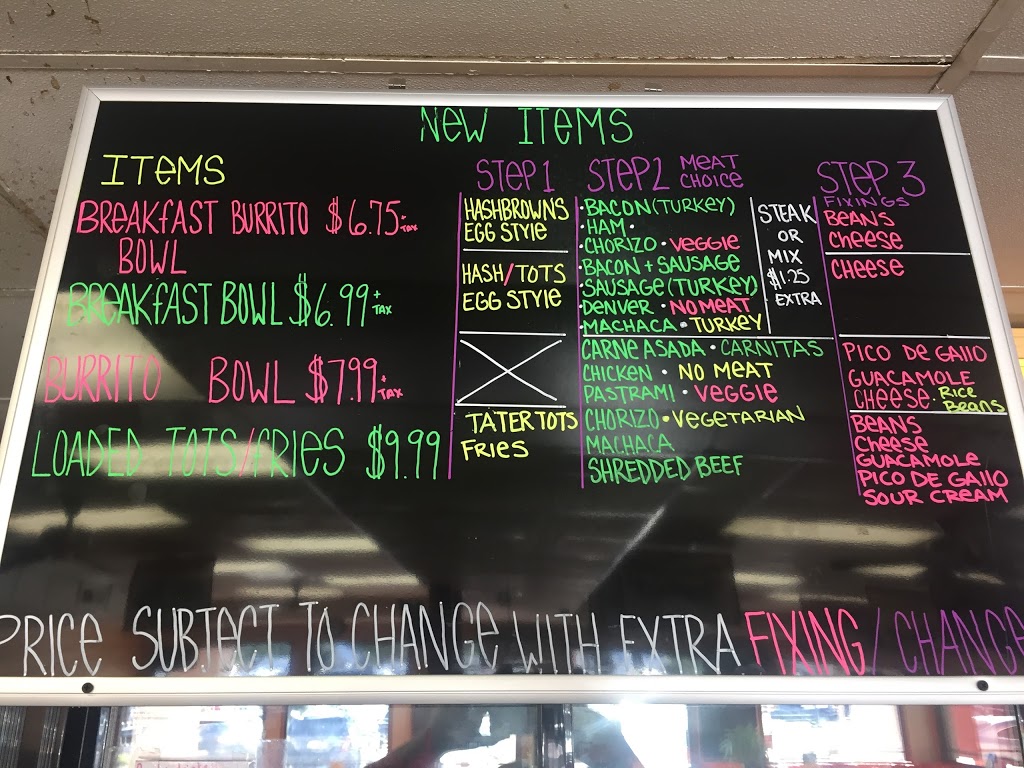 NEW ITEMS
ITEMS
BREAKFAST BURRITO $6.75 + TAX
BOWL
BREAKFAST BOWL $6.99 + TAX
BURRITO BOWL $7.99 + TAX
LOADED TOTS/FRIES $9.99
STEP 1
HASHBROWN'S
EGG STYLE
HASH/TOTS
EGG STYLE
TATER TOTS
FRIES
STEP 2 MEAT
CHOICE
• BACON (TURKEY)
• HAM •
• CHORIZO • VEGGIE
• BACON + SAUSAGE
• SAUSAGE (TURKEY)
• DENVER • NO MEAT
• MACHACA • TURKEY
STEAK
OR
MIX
$1.25
EXTRA
CARNE ASADA • CARNITAS
CHICKEN • NO MEAT
PASTRAMI • VEGGIE
CHORIZO • VEGETARIAN
MACHACA
SHREDDED BEEF
STEP 3
FIXINGS
BEANS
CHEESE
CHEESE
PICO DE GALLO
GUACAMOLE
CHEESE • RICE
BEANS
BEANS
CHEESE
GUACAMOLE
PICO DE GALLO
SOUR CREAM
PRICE SUBJECT TO CHANGE WITH EXTRA FIXING / CHANGE